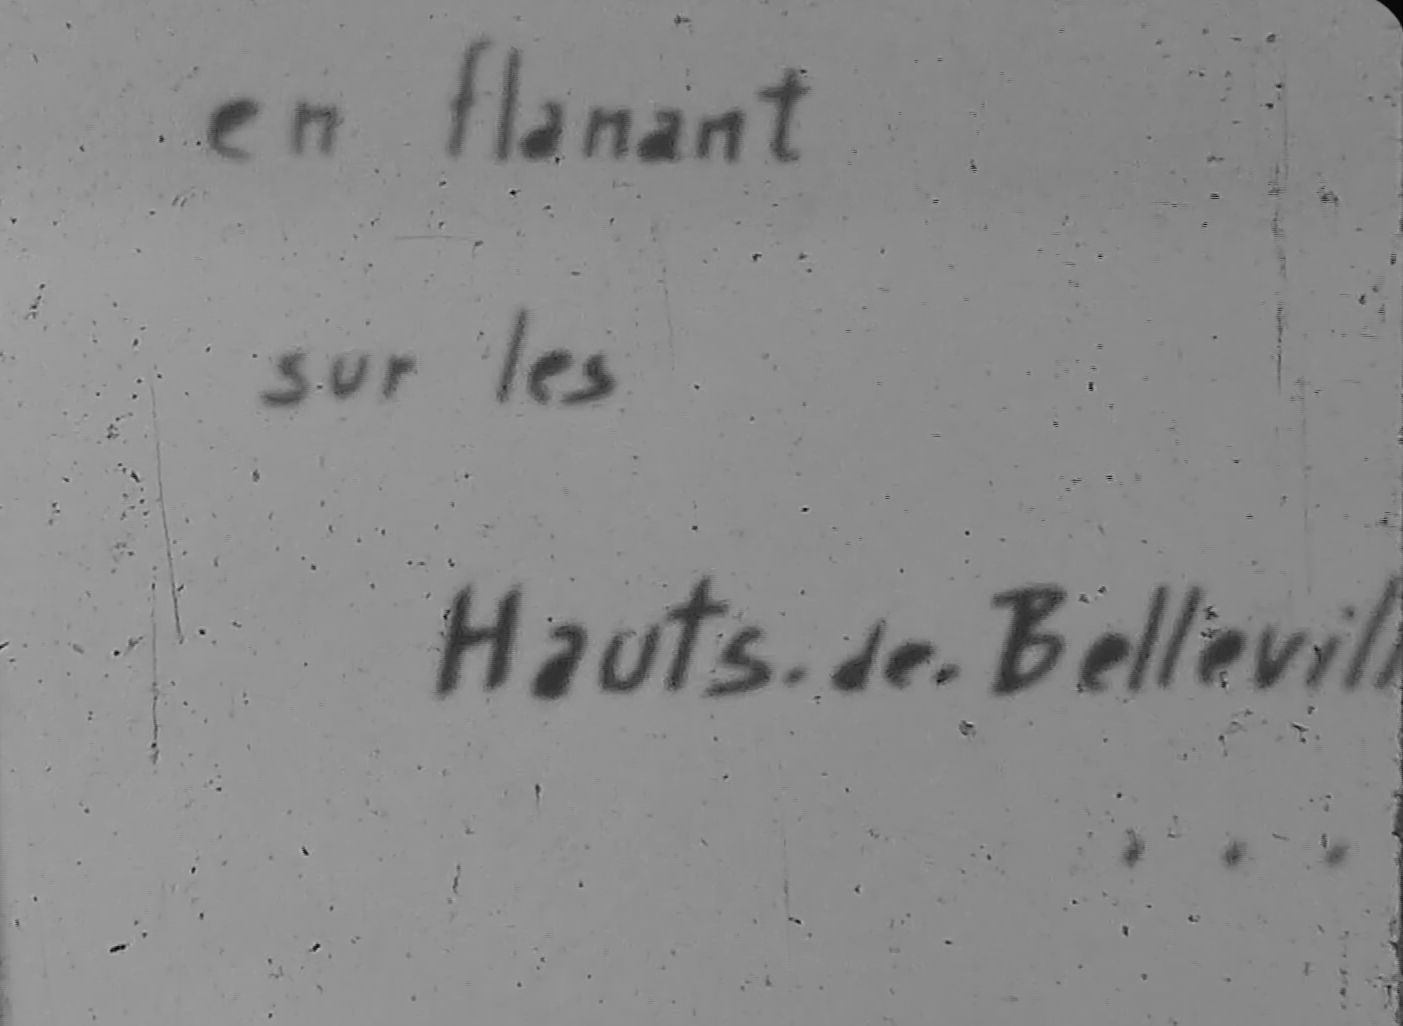 en flanant
sur les
Hauts.de.Bellevill
...